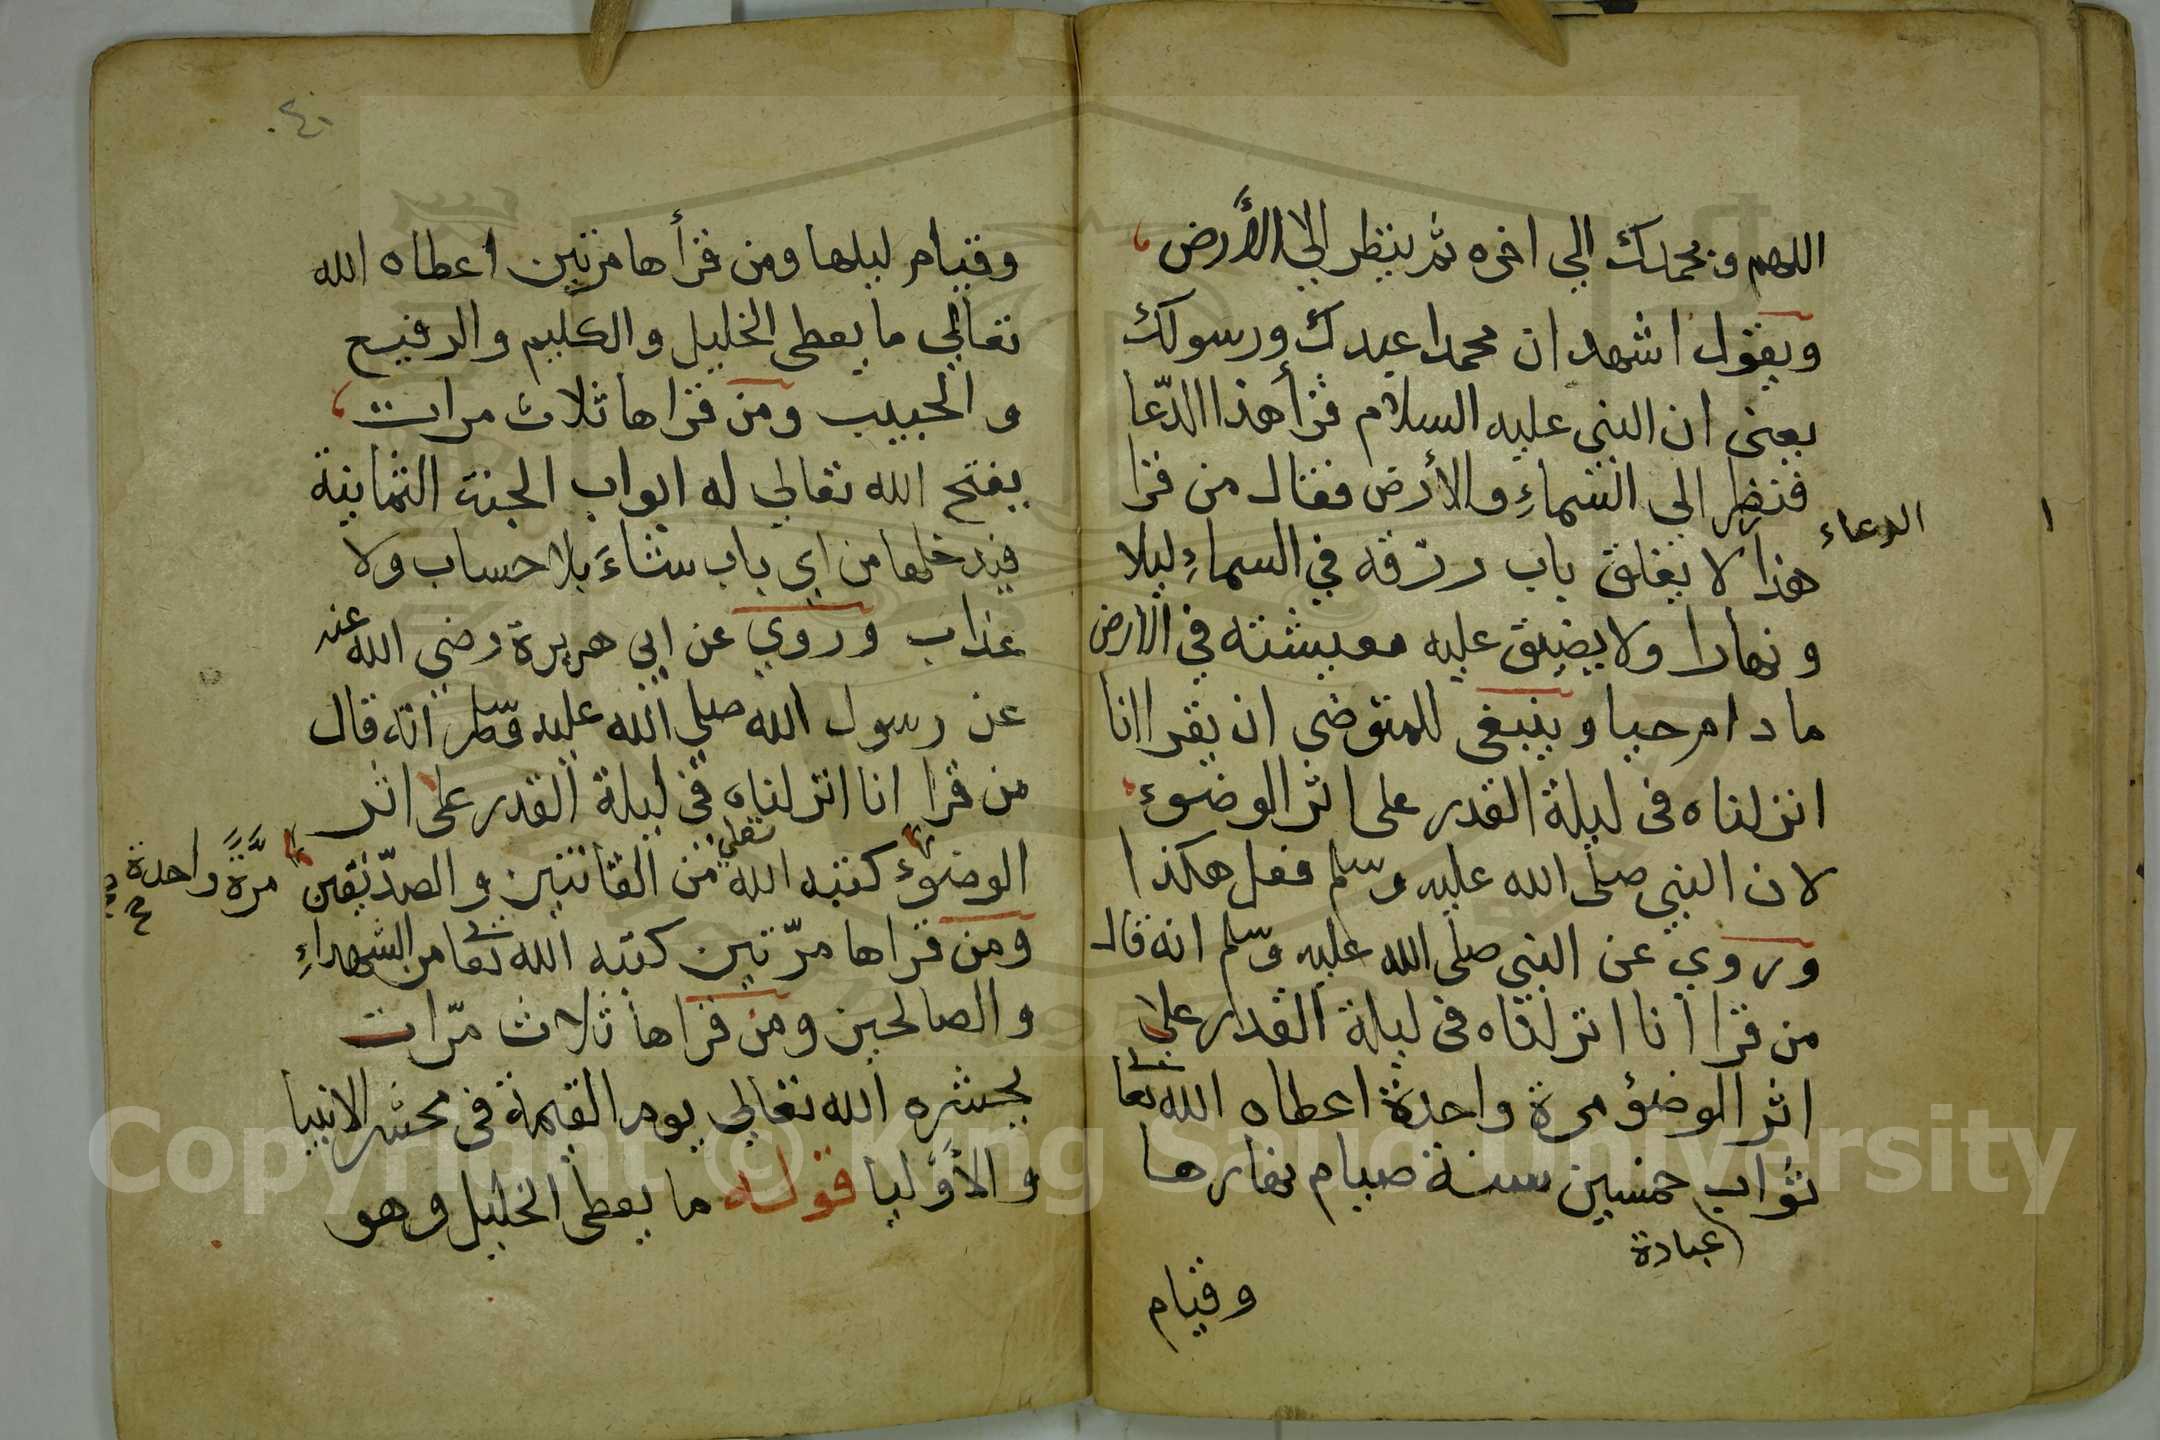 اللهم وبحمدك الي اخره ثم ينظر الي الأرض
ويقول اشهد ان محمدا عبدك ورسولك
يعنى ان النبي عليه السلام قرأ هذا الدّعا
فنظر الي السماءِ والأرض فقال من قرا
هذا الدعاء لا يغلق باب رزقه في السماءِ ليلا
ونهارا ولا يضيق عليه معيشته في الارض
ما دام حيا وينبغي للمتوضي ان يقرا انا
انزلناه فى ليلة القدر على اثر الوضوء
لان النبي صلى الله عليه وسلم فعل هكذا
وروي عن النبي صلى الله عليه وسلم انه قال
من قرا انا انزلناه فى ليلة القدر على
اثر الوضؤ مرة واحدة اعطاه الله تعالى
ثواب خمسين سنة صيام نهارها
عبادة
وقيام
٤٠
وقيام ليلها ومن قرأها مرتين اعطاه الله
تعالي ما يعطى الخليل والكليم والرفيع
والحبيب ومن قراها ثلاث مرات
يفتح الله تعالي له ابواب الجنة الثمانية
فيدخلها من اي باب شاءَ بلا حساب ولا
عذاب وروي عن ابي هريرة رضي الله عنه
عن رسول الله صلي الله عليه وسلم انه قال
من قرا انا انزلناه في ليلة القدر على اثر
الوضوء كتبه الله تعالى من القانتين والصدّيقين
مرَّةً واحدة صح
ومن قراها مرّتين كتبه الله تعالى من الشهداءِ
والصالحين ومن قراها ثلاث مرّات
يحشره الله تعالي يوم القيمة فى محشر الانبيا
والأوليا قوله ما يعطى الخليل وهو
Copyright © King Saud University